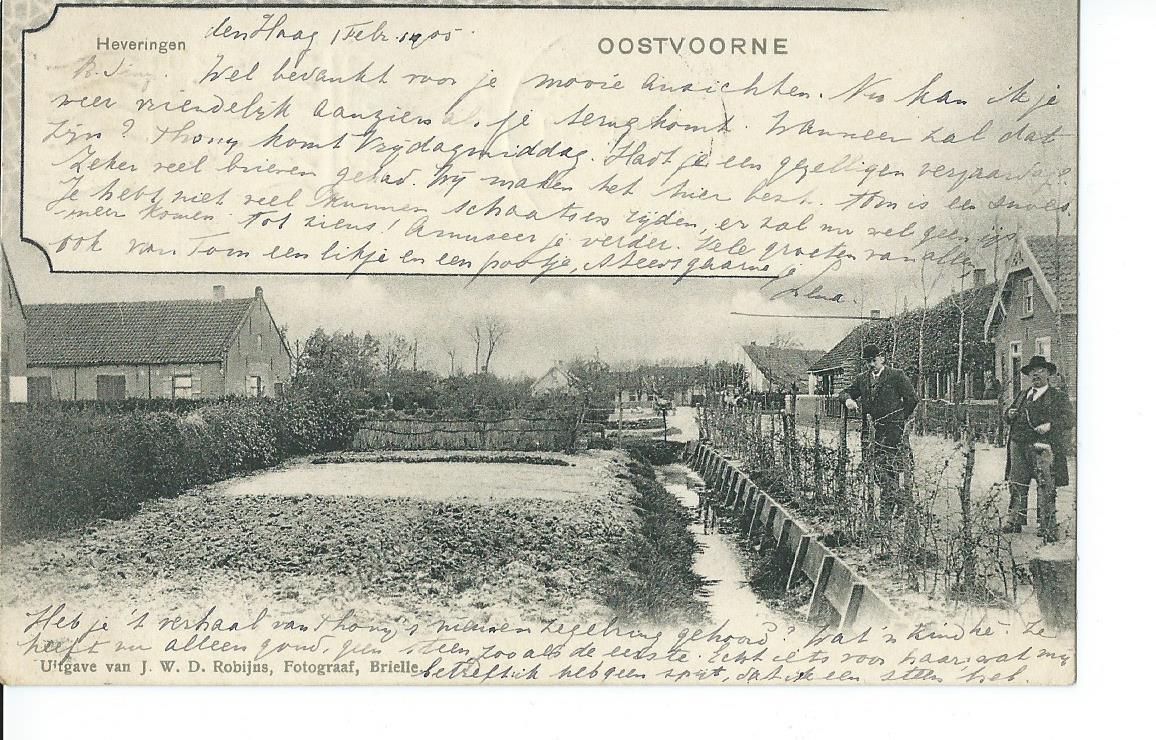 Heveringen den Haag 1 Febr. 1905. OOSTVOORNE
Wel bedankt voor je mooie ansichten. Nu kan ik je
weer vriendelijk aanzien als je terug komt. Wanneer zal dat
zijn? Thony komt Vrijdagmiddag. Hadt je een gezelligen verjaardag?
Zeker veel brieven gehad. Wij maken het hier best. Tom is een snoes.
Je hebt niet veel kunnen schaatsen rijden, er zal nu wel geen ijs
meer komen. Tot ziens! Amuseer je verder. Vele groeten van allen
ook van Tom een likje en een pootje, steeds gaarne je
Lena.
Heb je 't verhaal van Thony's nieuwen zegelring gehoord? Wat 'n kind hè. Ze
heeft nu alleen goud, geen steen zooals de eerste. Echt iets voor haar, wat mij
Uitgave van J. W. D. Robijns, Fotograaf, Brielle. betreft ik heb geen spijt, dat ik een steen heb.